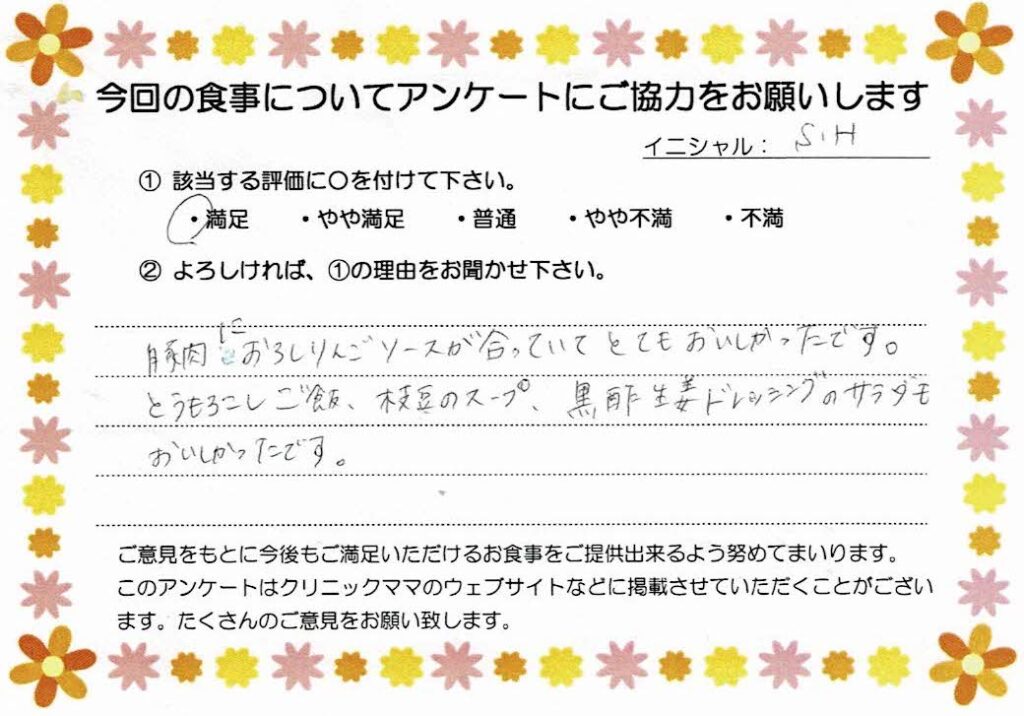 今回の食事についてアンケートにご協力をお願いします
イニシャル： S.H
① 該当する評価に〇を付けて下さい。
・満足 ・やや満足 ・普通 ・やや不満 ・不満
② よろしければ、①の理由をお聞かせ下さい。
豚肉におろしりんごソースが合っていてとてもおいしかったです。
とうもろこしご飯、枝豆のスープ、黒酢生姜ドレッシングのサラダも
おいしかったです。
ご意見をもとに今後もご満足いただけるお食事をご提供出来るよう努めてまいります。
このアンケートはクリニックママのウェブサイトなどに掲載させていただくことがござい
ます。たくさんのご意見をお願い致します。